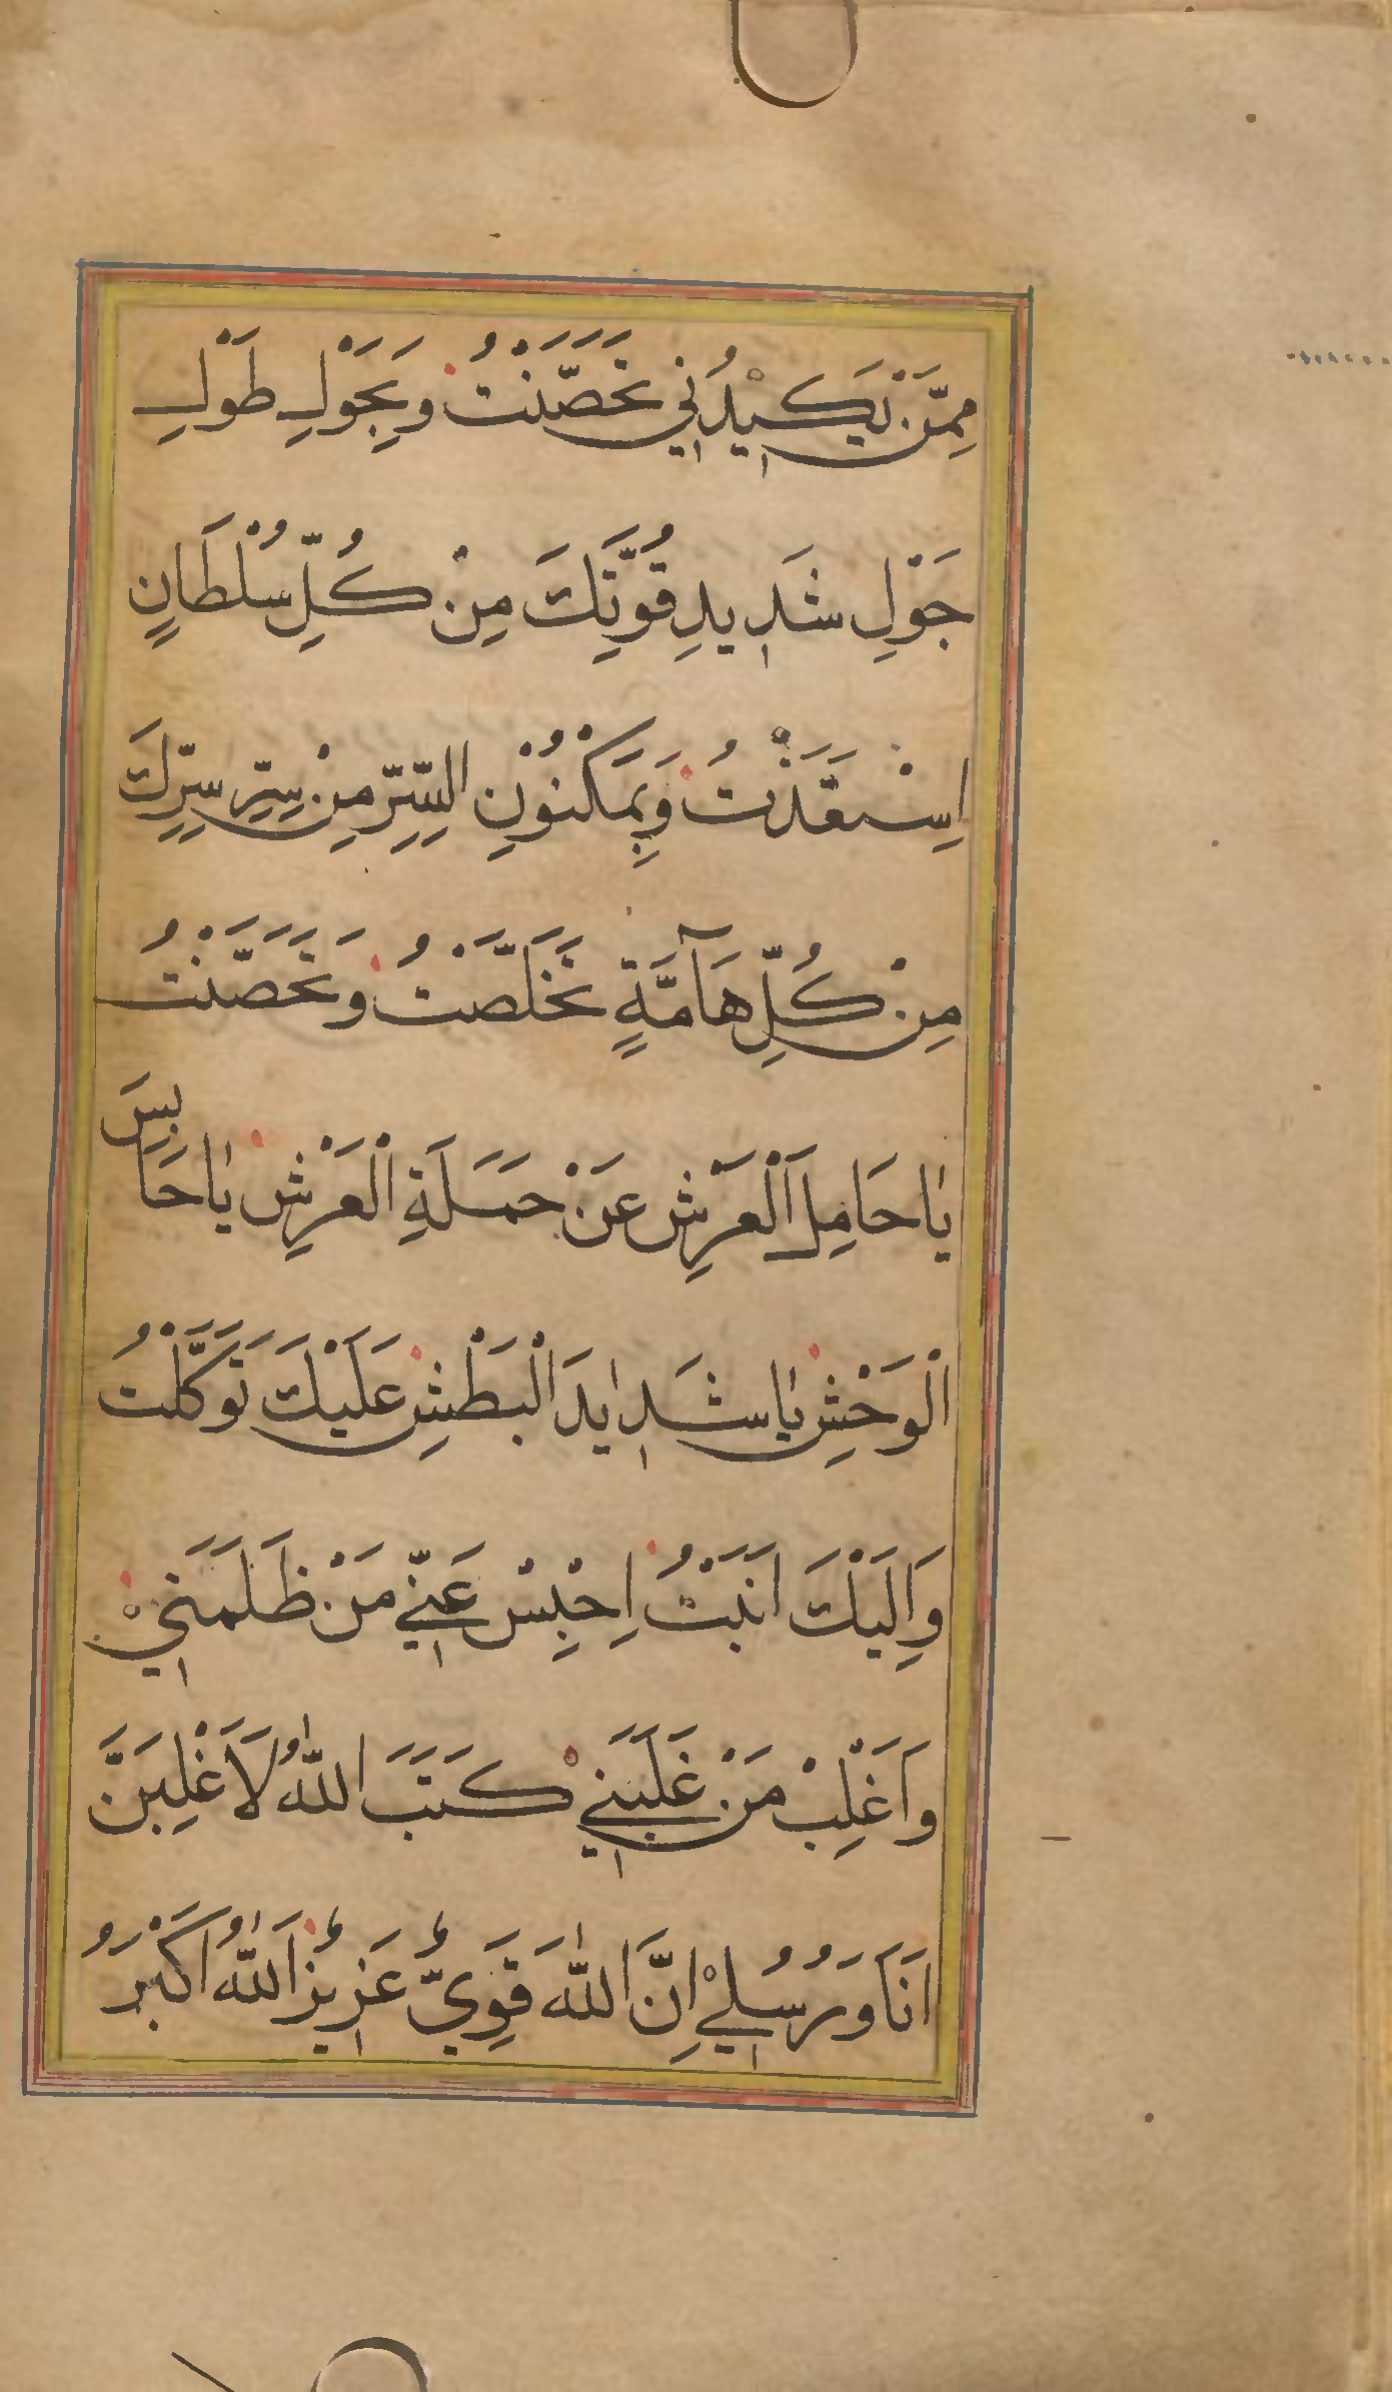 مِمَّنْ يَكٖيدُنٖي تَحَصَّنْتُ وَبِحَوْلِ طَوْلِ
جَوْلِ شَدٖيدِ قُوَّتِكَ مِنْ كُلِّ سُلْطَانٍ
اِسْتَنْقَذْتُ وَبِمَكْنُوْنِ السِّرِّ مِنْ سِرِّ سِرِّكَ
مِنْ كُلِّ هَآمَّةٍ تَخَلَّصْتُ وَتَحَصَّنْتُ
يٰا حَامِلَ الْعَرْشِ عَنْ حَمَلَةِ الْعَرْشِ يٰا حَابِسَ
الْوَحْشِ يٰا شَدٖيدَ الْبَطْشِ عَلَيْكَ تَوَكَّلْتُ
وَاِلَيْكَ اَنَبْتُ اِحْبِسْ عَنّٖي مَنْ ظَلَمَنٖي
وَاَغْلِبْ مَنْ غَلَبَنٖي كَتَبَ اللّٰهُ لَاَغْلِبَنَّ
اَنَا وَرُسُلٖيْ اِنَّ اللّٰهَ قَوِيٌّ عَزٖيزٌ اَللّٰهُ اَكْبَرُ